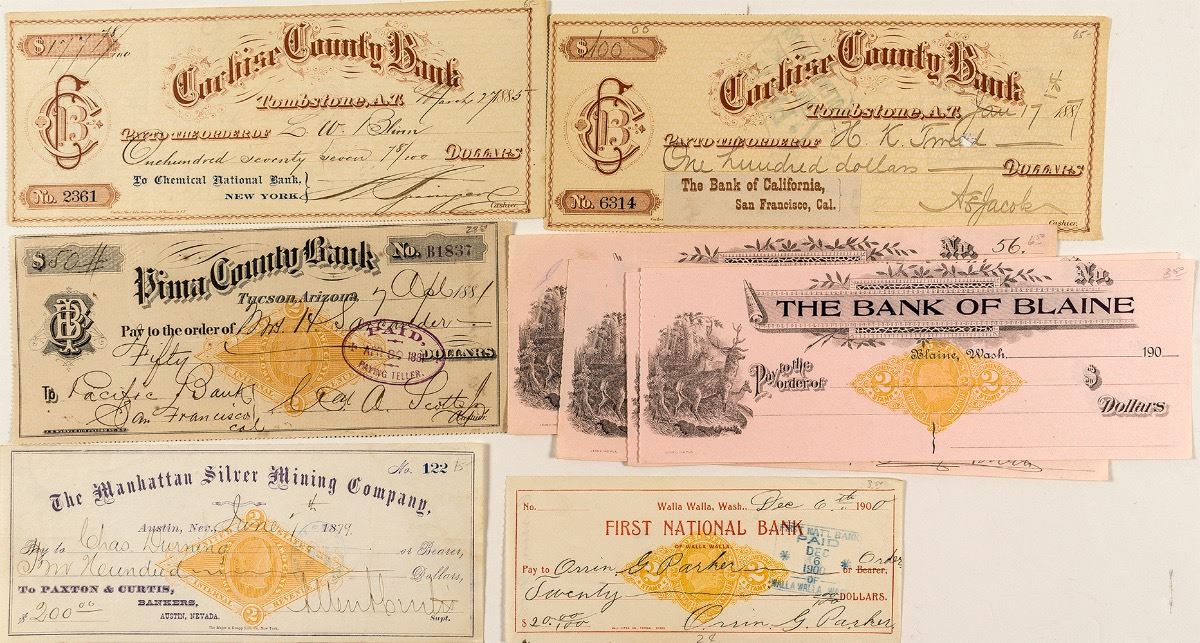 $177 78/100
65-
Cochise County Bank
Tombstone, A.T. March 27 1885
PAY TO THE ORDER OF L. W. Blinn
One hundred seventy seven 78/100 DOLLARS
To Chemical National Bank,
NEW YORK.
No. 2361
Cashier.
$100 00
65-
Cochise County Bank
Tombstone, A.T. Jan 17th 1887
PAY TO THE ORDER OF H. K. Tweed
One hundred dollars DOLLARS
The Bank of California,
San Francisco, Cal.
No. 6314
Cashier.
$50
285
Pima County Bank
No. B1837
Tucson, Arizona, 7 Apl 1881
Pay to the order of
Fifty DOLLARS
PAID.
PAYING TELLER.
To Pacific Bank
San Francisco
Cal
No. 56.
65-
No.
35-
THE BANK OF BLAINE
Blaine, Wash. 190
Pay to the
order of
$
2 2
Dollars
No. 122
15-
The Manhattan Silver Mining Company,
Austin, Nev., June 1th 1879
Pay to Chas Durning or Bearer,
Two Hundred Dollars,
To PAXTON & CURTIS,
BANKERS,
AUSTIN, NEVADA.
$200.00
Supt.
INTERNAL REVENUE
35-
No.
Walla Walla, Wash., Dec 6th 1900
FIRST NATIONAL BANK
OF WALLA WALLA
Pay to Orrin G. Parker or Bearer, Order
Twenty 00/100 DOLLARS.
$20.00/100
Orrin G. Parker
NAT'L BANK
PAID
DEC
6
1900
OF
WALLA WALLA, WA